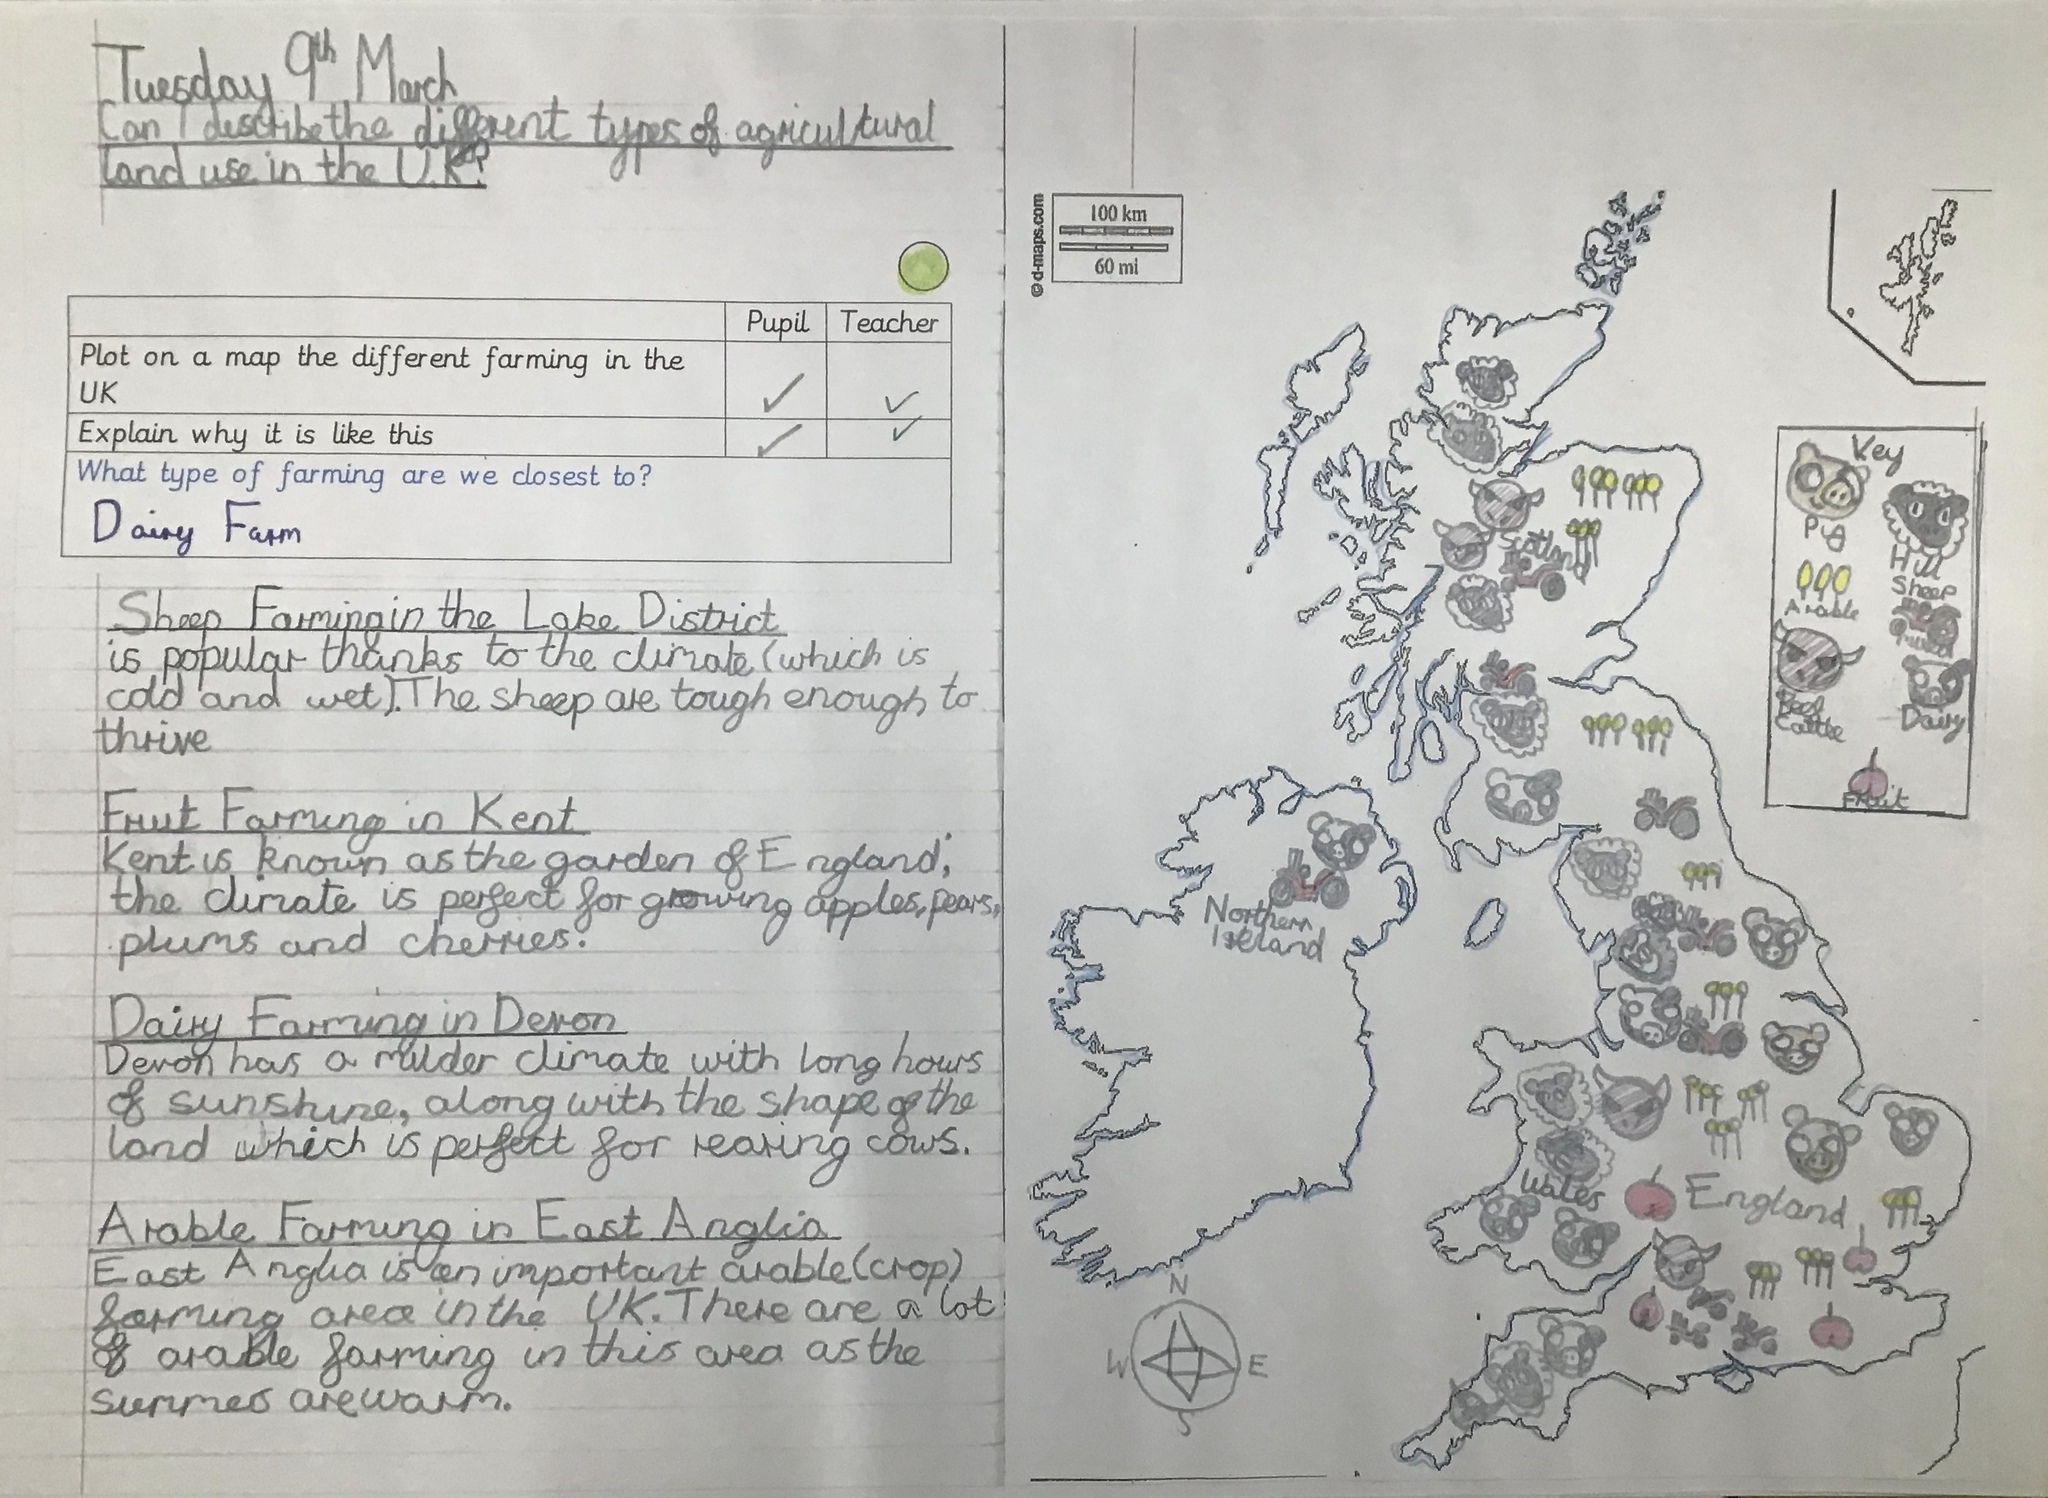 Tuesday 9th March
Can I describe the different types of agricultural
land use in the U.K?
Pupil Teacher
Plot on a map the different farming in the
UK
Explain why it is like this
What type of farming are we closest to?
Dairy Farm
Sheep Farming in the Lake District
is popular thanks to the climate (which is
cold and wet). The sheep are tough enough to
thrive
Fruit Farming in Kent
Kent is known as the garden of England;
the climate is perfect for growing apples, pears,
plums and cherries.
Dairy Farming in Devon
Devon has a milder climate with long hours
of sunshine, along with the shape of the
land which is perfect for rearing cows.
Arable Farming in East Anglia
East Anglia is an important arable (crop)
farming area in the UK. There are a lot
of arable farming in this area as the
summes are warm.
© d-maps.com
100 km
60 mi
Key
Pig
Hill
Sheep
Arable
Beef
Cattle
Dairy
Fruit
Scotland
Northern
Ireland
Wales
England
N
W E
S